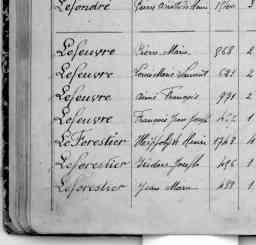 Lefondré
Lefeuvre Pierre Marie 868 2
Lefeuvre Louis Marie Laurent 681 2
Lefeuvre Aimé François 991 2
Lefeuvre François Jean Joseph 1
Le Forestier Hippolyte Henri 1748 4
Leforestier Isidore Joseph 496 1
Leforestier Jean Marie 488 1